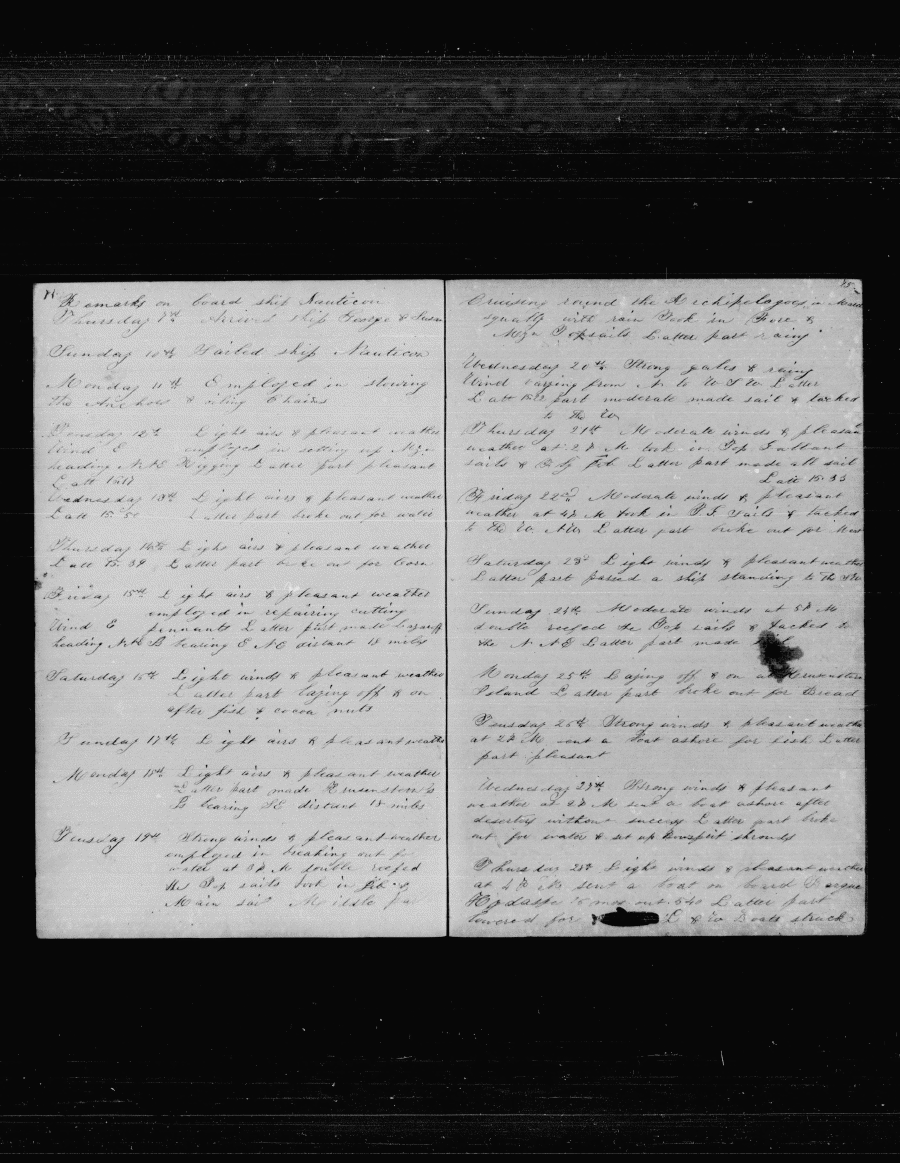 Remarks on board ship Nauticon
Thursday 7th Arrived ship George & Susan
Sunday 10th Sailed ship Nauticon
Monday 11th Employed in stowing
the Anchors & Chains
Tuesday 12th Light airs & pleasant weather
Wind E employed in setting up Mizn
heading NNE Rigging Latter part pleasant
Latt
Wednesday 13th Light airs & pleasant weather
Latt 15.50 Latter part broke out for water
Thursday 14th Light airs & pleasant weather
Latt 15.39 Latter part broke out for Corn
Friday 15th Light airs & pleasant weather
employed in repairing cutting
Wind E pennants Latter part made
heading NNE Is bearing ENE distant 18 miles
Saturday 16th Light winds & pleasant weather
Latter part laying off & on
after fish & cocoa nuts
Sunday 17th Light airs & pleasant weather
Monday 18th Light airs & pleasant weather
Latter part made Krusensterns
Is bearing SE distant 18 miles
Tuesday 19th Strong winds & pleasant weather
employed in breaking out for
water at 3 P M double reefed
the Top sails took in Jib &
Main sail Middle par
75
Cruising round the Archipelagoes in
squally with rain Took in Fore &
Mizn Topsails Latter part rainy
Wednesday 20th Strong gales & rainy
Wind varying from N to WSW Latter
Latt part moderate made sail & tacked
to the W
Thursday 21st Moderate winds & pleasant
weather at 2 P M took in Top Gallant
sails & Fly Jib Latter part made all sail
Latt 15.33
Friday 22nd Moderate winds & pleasant
weather at 4 P M took in T G Sails & tacked
to the W. NW Latter part broke out for Meat
Saturday 23d Light winds & pleasant weather
Latter part passed a ship standing to the SW
Sunday 24th Moderate winds at 5 P M
double reefed the Top sails & tacked to
the N NE Latter part made sail
Monday 25th Laying off & on at Krusensterns
Island Latter part broke out for Bread
Tuesday 26th Strong winds & pleasant weather
at 2 P M sent a boat ashore for fish Latter
part pleasant
Wednesday 27th Strong winds & pleasant
weather at 2 P M sent a boat ashore after
deserters without success Latter part broke
out for water & set up bowsprit shrouds
Thursday 28th Light winds & pleasant weather
at 4 P M sent a boat on board Barque
Hydaspe 15 mos out 540 Latter part
lowered for L & W Boats struck